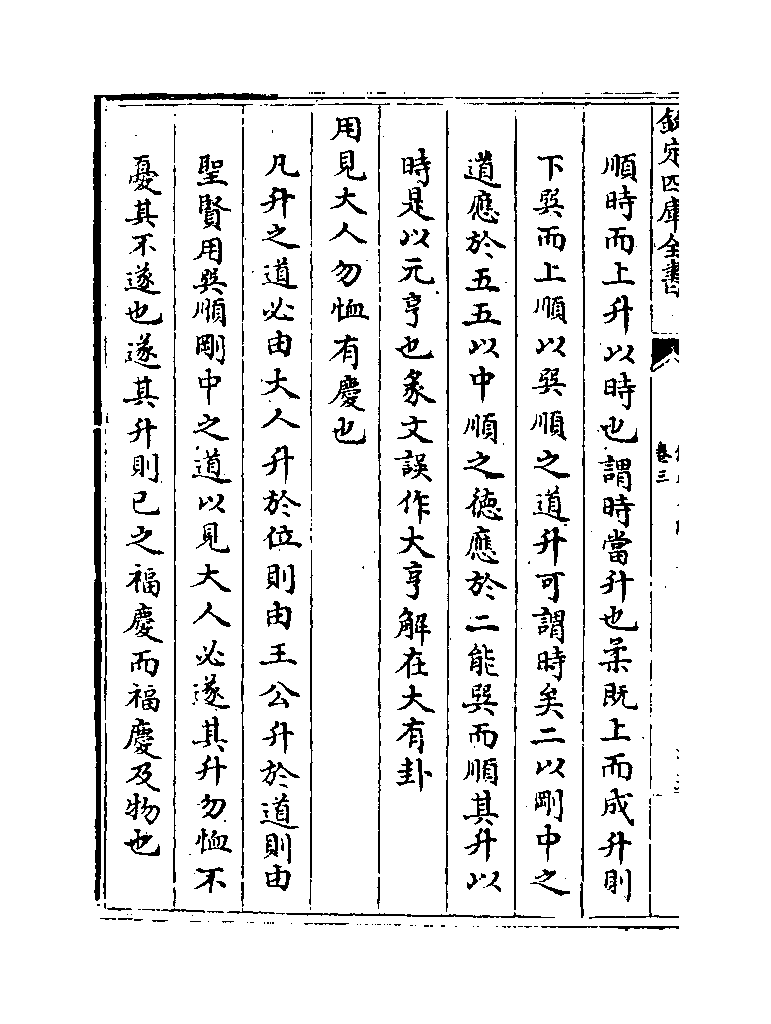 欽定四庫全書
卷三
順時而上升以時也謂時當升也柔既上而成升則
下巽而上順以巽順之道升可謂時矣二以剛中之
道應於五五以中順之德應於二能巽而順其升以
時是以元亨也彖文誤作大亨解在大有卦
用見大人勿恤有慶也
凡升之道必由大人升於位則由王公升於道則由
聖賢用巽順剛中之道以見大人必遂其升勿恤不
憂其不遂也遂其升則已之福慶而福慶及物也